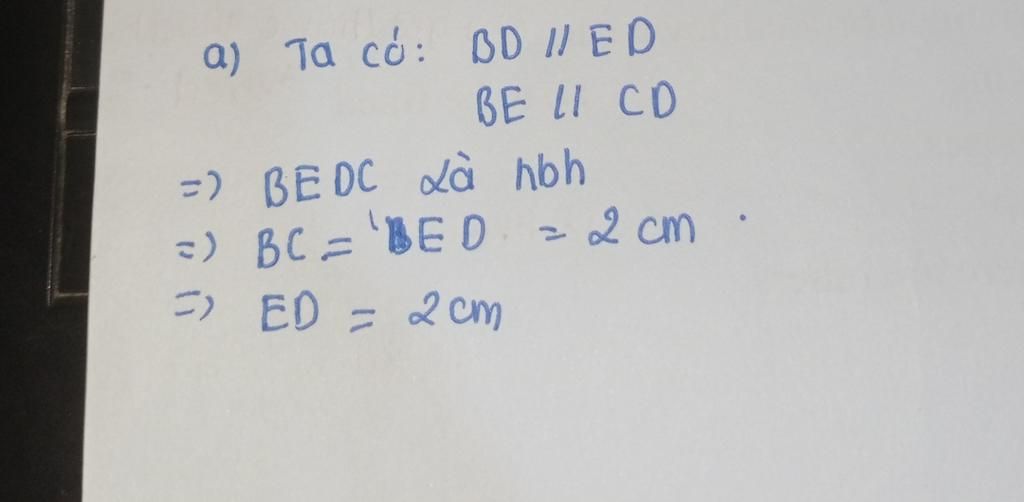 a) Ta có: BD // ED
BE // CD
=> BEDC là hbh
=> BC = ED = 2 cm
=> ED = 2 cm